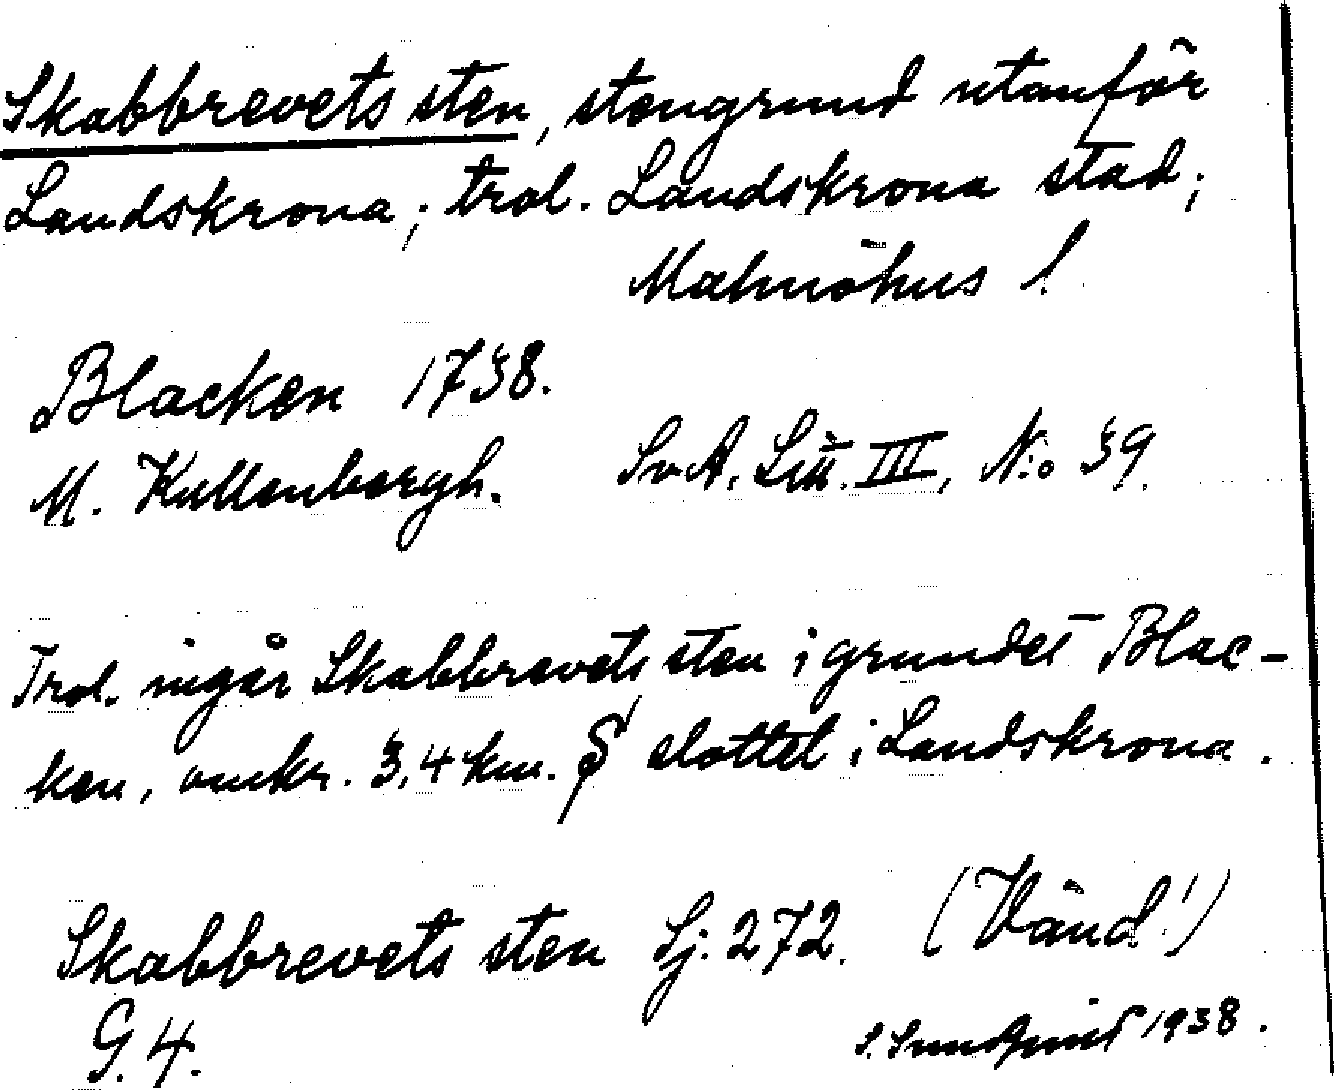 Skabbrevets sten, stengrund utanför
Landskrona; trol. Landskrona stad;
Malmöhus l.
Blacken 1738.
M. Kullenbergh. SvA. Litt. III, N:o 39.
Trol. ingår Skabbrevets sten i grundet Blac-
ken, omkr. 3,4 km. S slottet i Landskrona.
Skabbrevets sten Sj. 272. (Vänd!)
G. 4.
S. Sundqvist 1938.